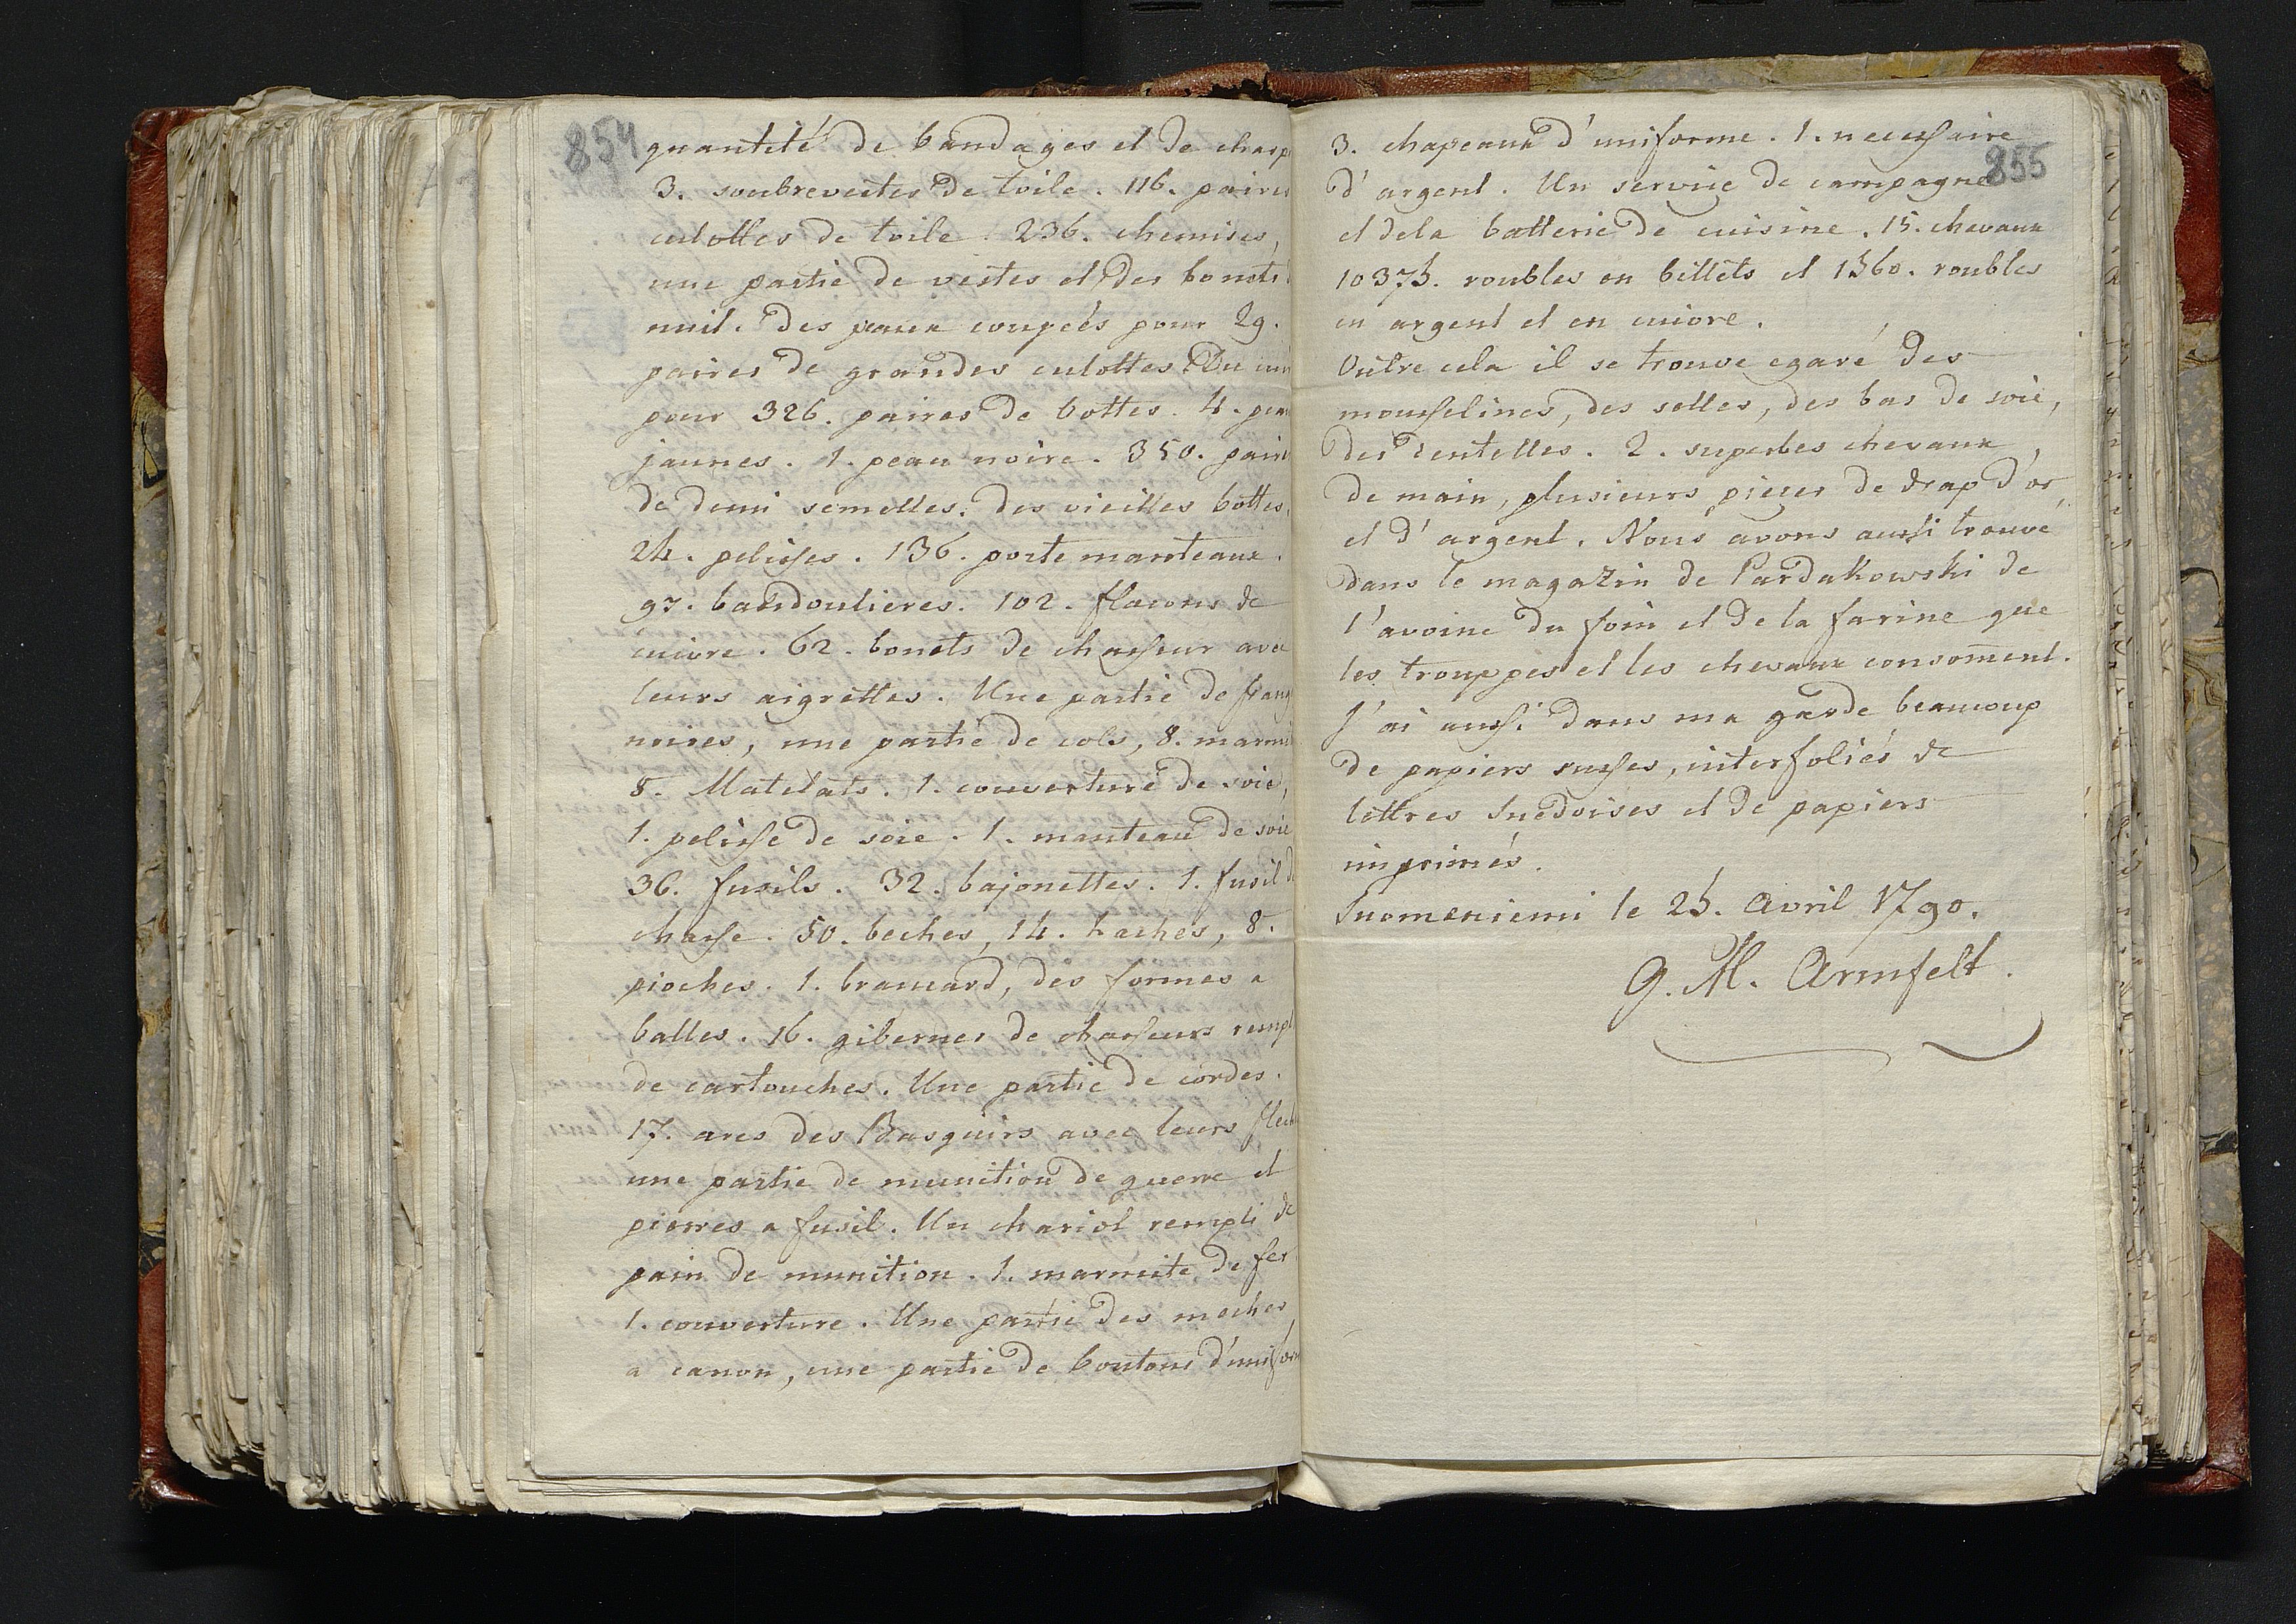 854
quantité de bandages et de charp
3. soubrevestes de toile. 116. paires
culottes de toile. 236. chemises,
une partie de vestes et des bonets
nuit. Des peaux coupeés pour 29.
paires de grandes culottes. Du cui
pour 326. paires de bottes. 4. peau
jaunes. 1. peau noire. 350. paire
de demi semelles. des vieilles bottes.
24. pelisses. 136. porte manteaux.
97. bandoulieres. 102. flacons de
cuivre. 62. bonets de chasseur avec
leurs aigrettes. Une partie de frang
noires, une partie de cols, 8. marmi
8. Matelats. 1. couverture de soie,
1. pelisse de soie. 1. manteau de soie
36. fusils. 32. bajonettes. 1. fusil d
chasse. 50. beches, 14. haches, 8.
pioches. 1. brancard, des formes a
balles. 16. gibernes de chasseurs rempl
de cartouches. Une partie de cordes.
17. arcs des Basquirs avec leurs flech
une partie de munition de guerre et
pierres a fusil. Un chariot rempli de
pain de munition. 1. marmite de fer
1. couverture. Une partie des meches
a canon, une partie de boutons d'uniform
855
3. chapeaux d'uniforme. 1. necessaire
d'argent. Un service de campagne
et dela batterie de cuisine. 15. chevaux
10375. roubles en billets et 1560. roubles
en argent et en cuivre.
Outre cela il se trouve egaré des
mousselines, des selles, des bas de soie,
des dentelles. 2. superbes chevaux
de main, plusieurs pieces de drap d'or,
et d'argent. Nous avons aussi trouvé
dans le magazin de Pardakowski de
l'avoine du foin et de la farine que
les trouppes et les chevaux consom̄ent.
J'ai aussi dans ma garde beaucoup
de papiers russes, interfoliés de
lettres Suedoises et de papiers
imprimés.
Suomeniemi le 25. Avril 1790.
G. M. Armfelt.